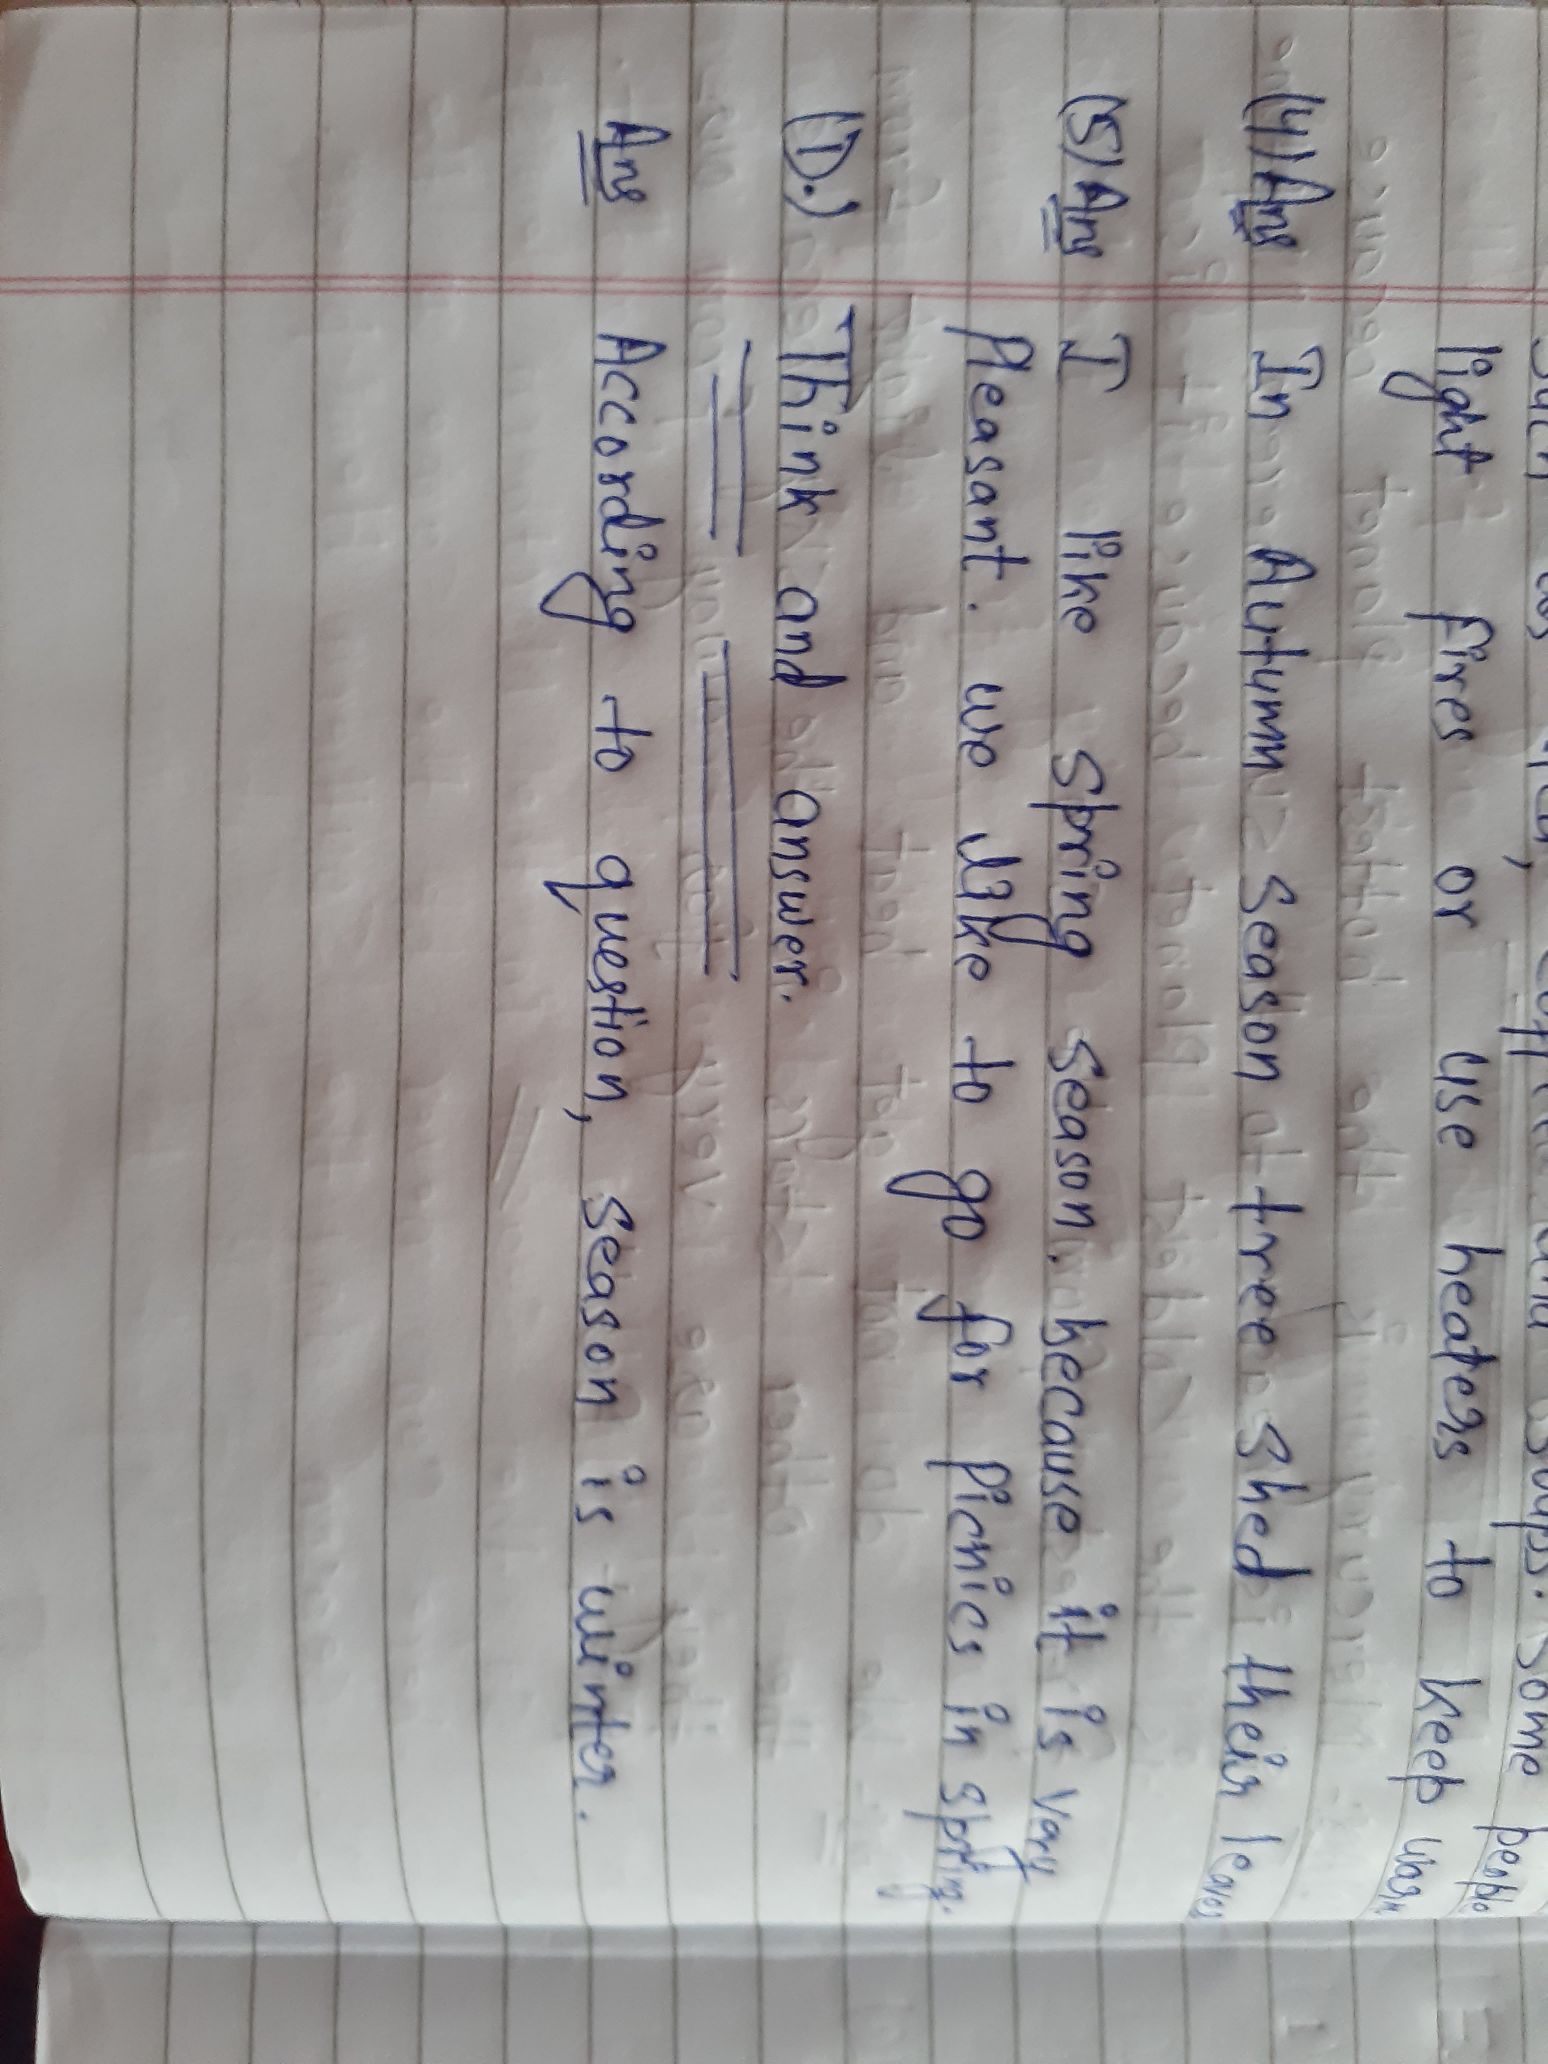 light fires or use heaters to keep warm.
(4) Ans In Autumn season tree shed their leaves
(5) Ans I like spring season. because it is vary
Pleasant. we like to go for picnics in spring.
(D.) Think and answer.
Ans According to question, season is winter.